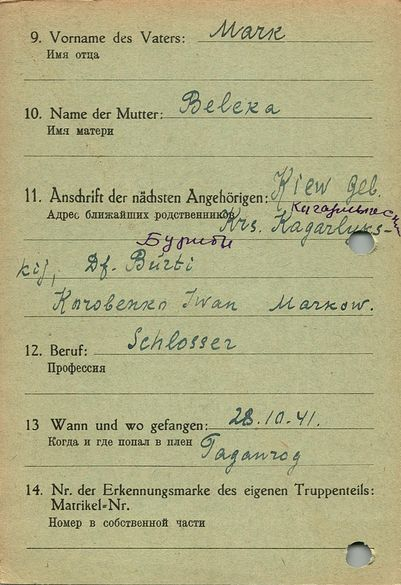 9. Vorname des Vaters: Mark
Имя отца
10. Name der Mutter: Beleka
Имя матери
11. Anschrift der nächsten Angehörigen: Kiew Geb.
Адрес ближайших родственников Krs. Kagarlyks-
Бурти
kij, Df. Bürti
Korobenko Iwan Markow.
12. Beruf: Schlosser
Профессия
13 Wann und wo gefangen: 28.10.41.
Когда и где попал в плен Taganrog
14. Nr. der Erkennungsmarke des eigenen Truppenteils:
Matrikel=Nr.
Номер в собственной части